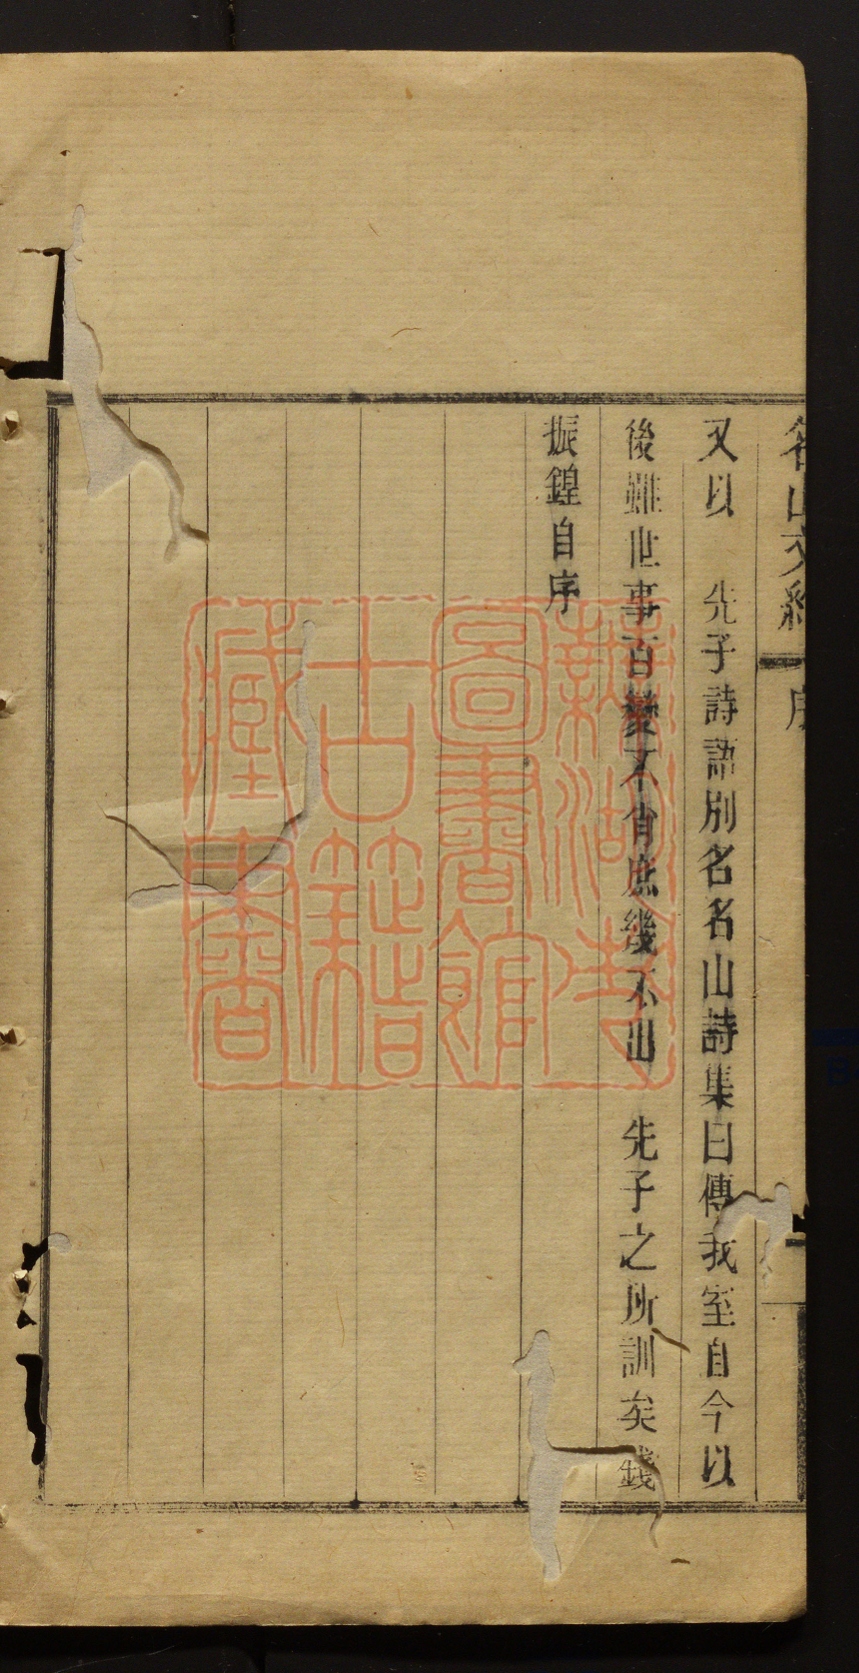 名山文約 序
又以 先子詩語別名名山詩集曰傳我室自今以
後雖世事百變不肖庶幾不出 先子之所訓矣錢
振鍠自序
蕪湖市
圖書館
古籍
藏書